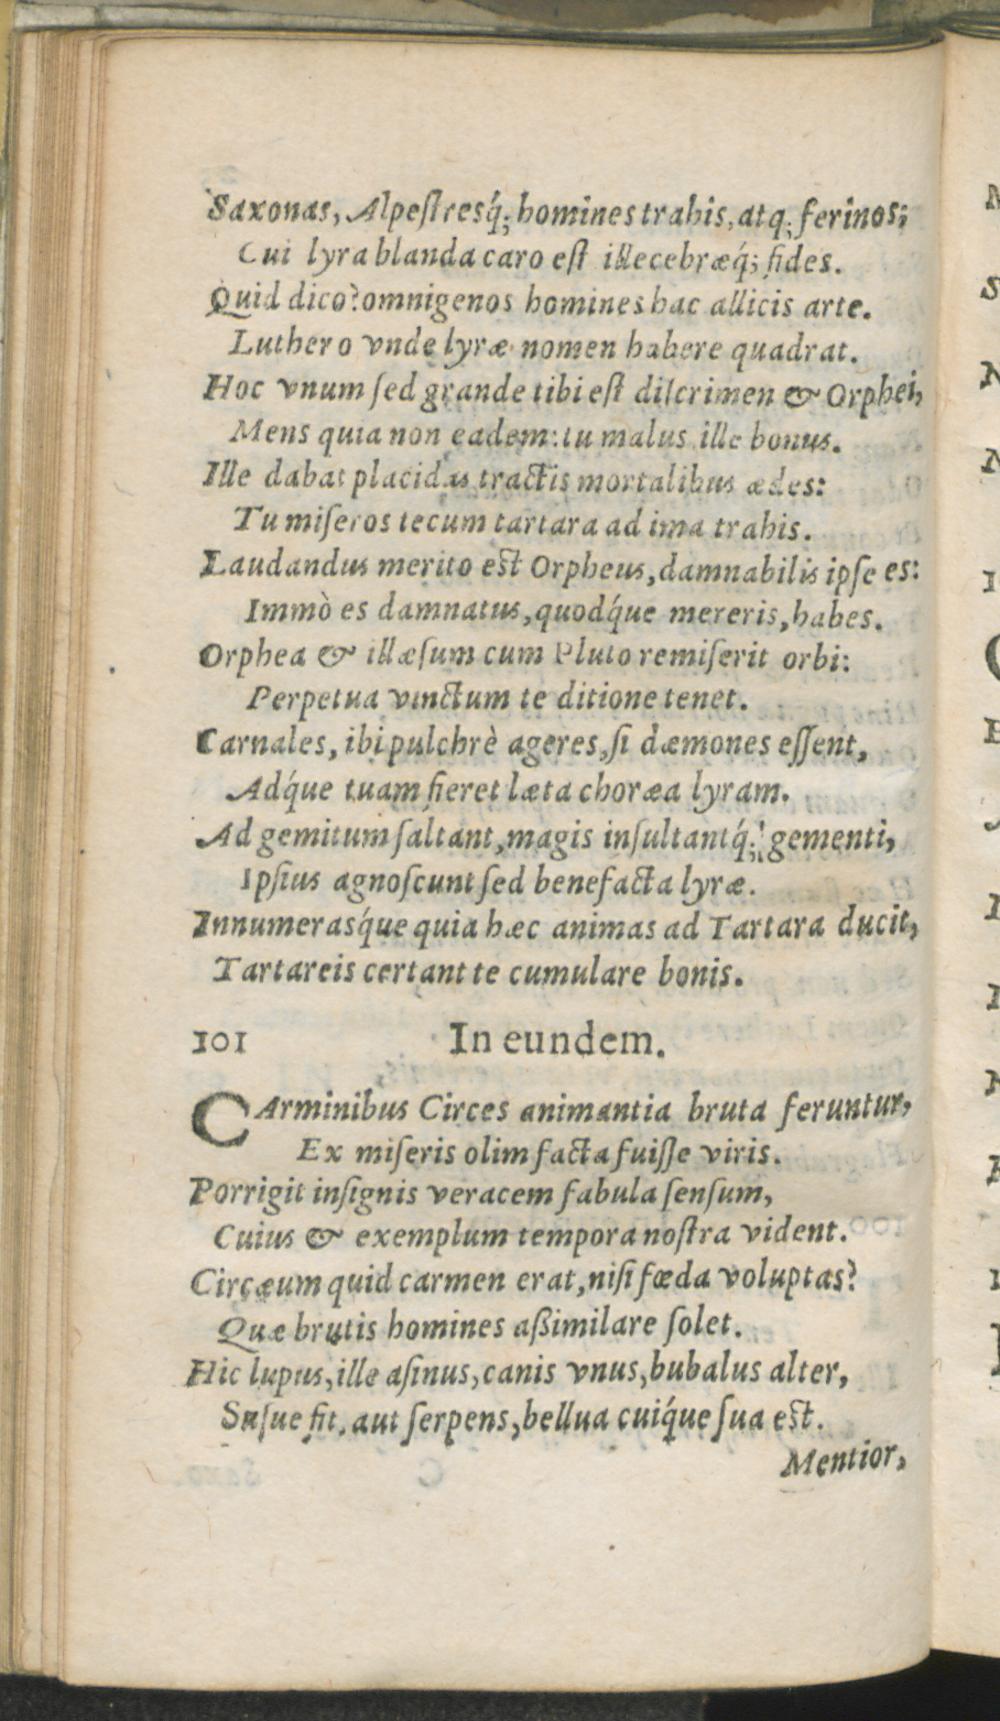 Saxonas, Alpeſtresq́; homines trahis, atq; ferinos;
Cui lyra blanda caro eſt illecebræq́; fides.
Quid dico? omnigenos homines hac allicis arte.
Luthero vnde lyræ nomen habere quadrat.
Hoc vnum ſed grande tibi eſt diſcrimen & Orphei,
Mens quia non eadem: tu malus ille bonus.
Ille dabat placidas tractis mortalibus ædes:
Tu miſeros tecum tartara ad ima trahis.
Laudandus merito eſt Orpheus, damnabilis ipſe es:
Immò es damnatus, quodq́ue mereris, habes.
Orphea & illæſum cum Pluto remiſerit orbi:
Perpetua vinctum te ditione tenet.
Carnales, ibi pulchrè ageres, ſi dæmones eſſent,
Adq́ue tuam fieret læta choræa lyram.
Ad gemitum ſaltant, magis inſultantq́; gementi,
Ipſius agnoſcunt ſed benefacta lyræ.
Innumerasq́ue quia hæc animas ad Tartara ducit,
Tartareis certant te cumulare bonis.
101 In eundem.
CArminibus Circes animantia bruta feruntur,
Ex miſeris olim facta fuiſſe viris.
Porrigit inſignis veracem fabula ſenſum,
Cuius & exemplum tempora noſtra vident.
Circæum quid carmen erat, niſi fœda voluptas?
Quæ brutis homines aßimilare ſolet.
Hic lupus, ille aſinus, canis vnus, bubalus alter,
Susue fit, aut ſerpens, bellua cuiq́ue ſua eſt.
Mentior,